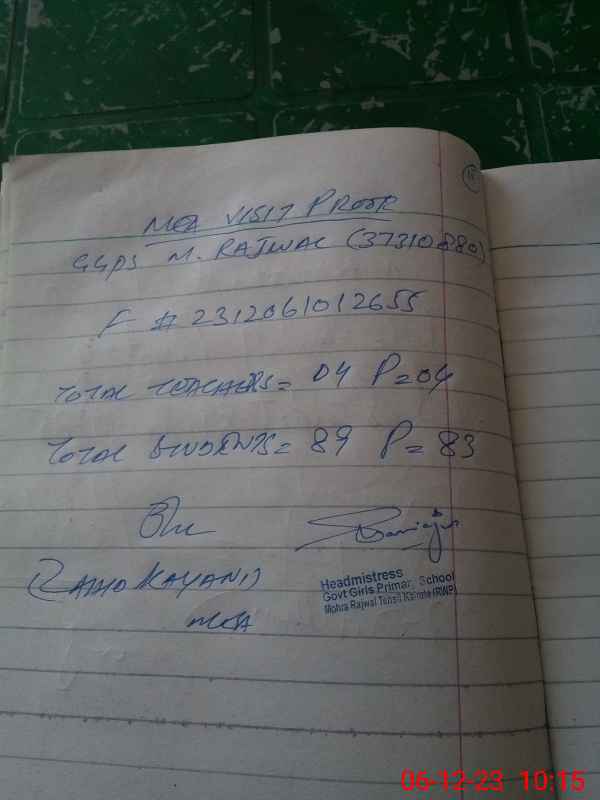 MEA VISIT PROOF
GGPS M. RAJWAL (37310880)
F # 2312061012655
TOTAL TEACHERS = 04 P=04
TOTAL STUDENTS = 89 P= 83
KAYANI
MEA
Headmistress
Govt Girls Primar School
Mohra Rajwal Tehsil (RWP)
06-12-23 10:15